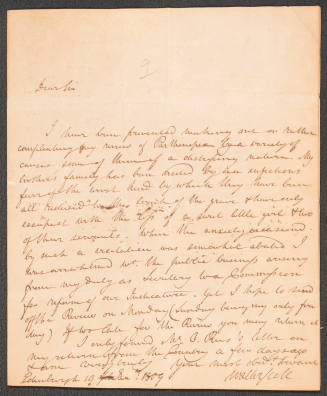 Dear Sir
I have been prevented making out or rather
completing my review of Parthenopex by a variety of
causes some of them of a distressing nature. My
brothers family has been visited by an infectious
fever of the worst kind by which they have been
all reduced to the brink of the grave & have only
escaped with the loss of a sweet little girl & two
of their servants. When the anxiety occasioned
by such a visitation was somewhat abated I
was overwhelmed wt. the public business arising
from my duty as Secretary to a Commission
for reform of our Judicature. Yet I hope to send
off the Review on Monday (Sunday being my only free
day) If too late for the Review you may return it
I only found Mr. C. 's letter on
my return from the Country a few days ago
I am very truly Your most obedt. Servant
Edinburgh 19 1809 Walter Scott